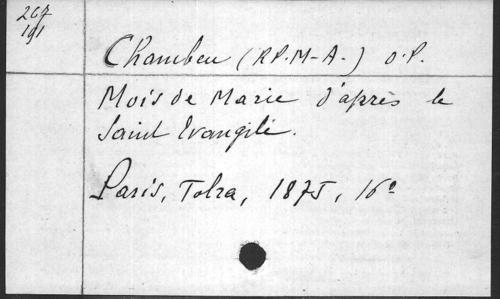 267
191
Chambeu (R.P. M-A.) O.P.
Mois de Marie d'après le
Saint Evangile.
Paris, Tolra, 1875, 16°